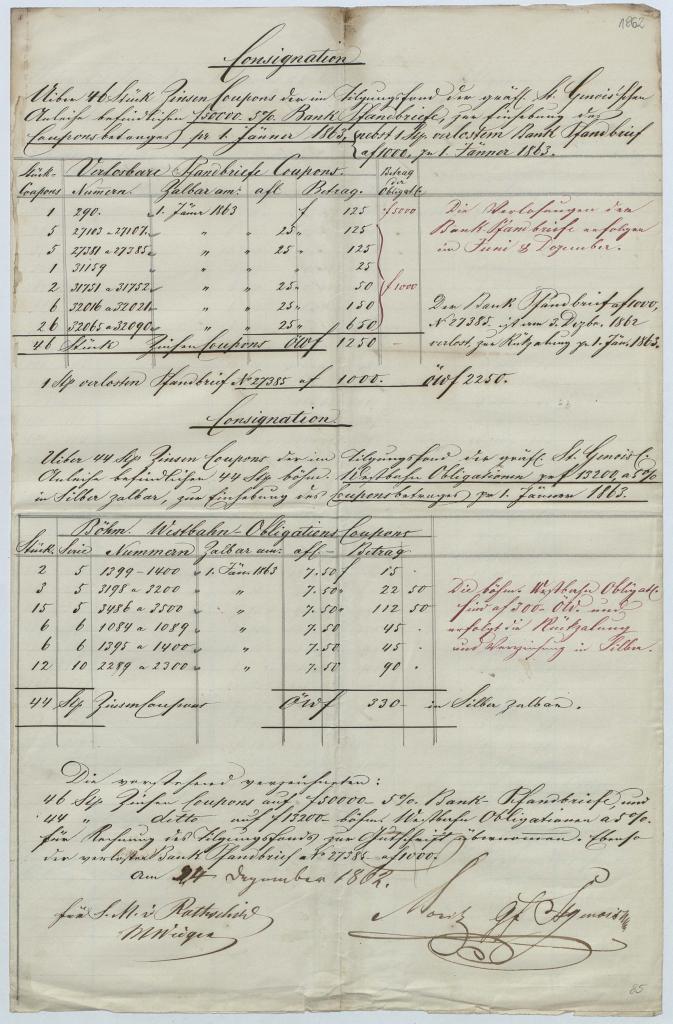 1862
Consignation
Uiber 46 Stück Zinsen Coupons der im Tilgungsfond der gräfl. St. Genois'schen
Anleihe befindlichen f 50000 5% Bank Pfandbriefe, zur Einhebung des
Couponsbetrages pr 1. Jänner 1863, nebst 1 Stp verlostem Bank Pfandbrief
a f 1000. pr 1. Jänner 1863.
Stück Verlosbare Pfandbriefe Coupons. Betrag der Obligat.
Coupons Numern. Zalbar am: a fl Betrag.
1 290. 1. Jäner 1863 f 125 f 5000
5 27103 a 27107 " " 25 " 125
5 27381 a 27385 " " 25 " 125
1 31159 " " 25
2 31751 a 31752 " " 25 " 50 f 1000
6 32016 a 32021 " " 25 " 150
26 32065 a 32090 " " 25 " 650
46 Stück Zinsen Coupons ÖWf 1250
Die Verlosungen der
Bank Pfandbriefe erfolgen
im Juni & Dezember.
Der Bank Pfandbrief a f 1000,
No 27385. ist am 3. Dezbr. 1862
verlost, zur Rückzalung pr 1. Jän. 1863.
1 Stp verlosten Pfandbrief No 27385 a f 1000. ÖWf 2250.
Consignation
Uiber 44 Stp Zinsen Coupons der im Tilgungsfond der gräfl. St. Genois
Anleihe befindlichen 44 Stp böhm. Westbahn Obligationen pr f 13200, a 5%
in Silber zalbar, zur Einhebung des Couponsbetrages pr 1. Jänner 1863.
Böhm. Westbahn-Obligations Coupons
Stück Serie Nummern Zalbar am: a fl Betrag
2 5 1399-1400 1. Jän. 1863 7.50 f 15 -
3 5 3198 a 3200 " 7.50 " 22 50
15 5 3486 a 3500 " 7.50 " 112 50
6 6 1084 a 1089 " 7.50 45 .
6 6 1395 a 1400 " 7.50 45 .
12 10 2289 a 2300 " 7.50 90 .
Die böhm. Westbahn Obligat.
sind a f 300- ÖW. und
erfolgt die Rückzalung
und Verzinsung in Silber.
44 Stp Zinsen Coupons ÖWf 330- in Silber zalbar.
Die vorstehend verzeichneten:
46 Stp Zinsen Coupons auf f 50000- 5% Bank-Pfandbriefe, und
44 " ditto auf f 13200- böhm. Westbahn Obligationen a 5%
für Rechnung des Tilgungsfonds zur Gutschrift übernommen. Ebenso
der verloste Bank Pfandbrief a No 27385 a f 1000.
am 24 Dezember 1862.
für S. M. v Rothschild
Moriz Gf StGenois
85